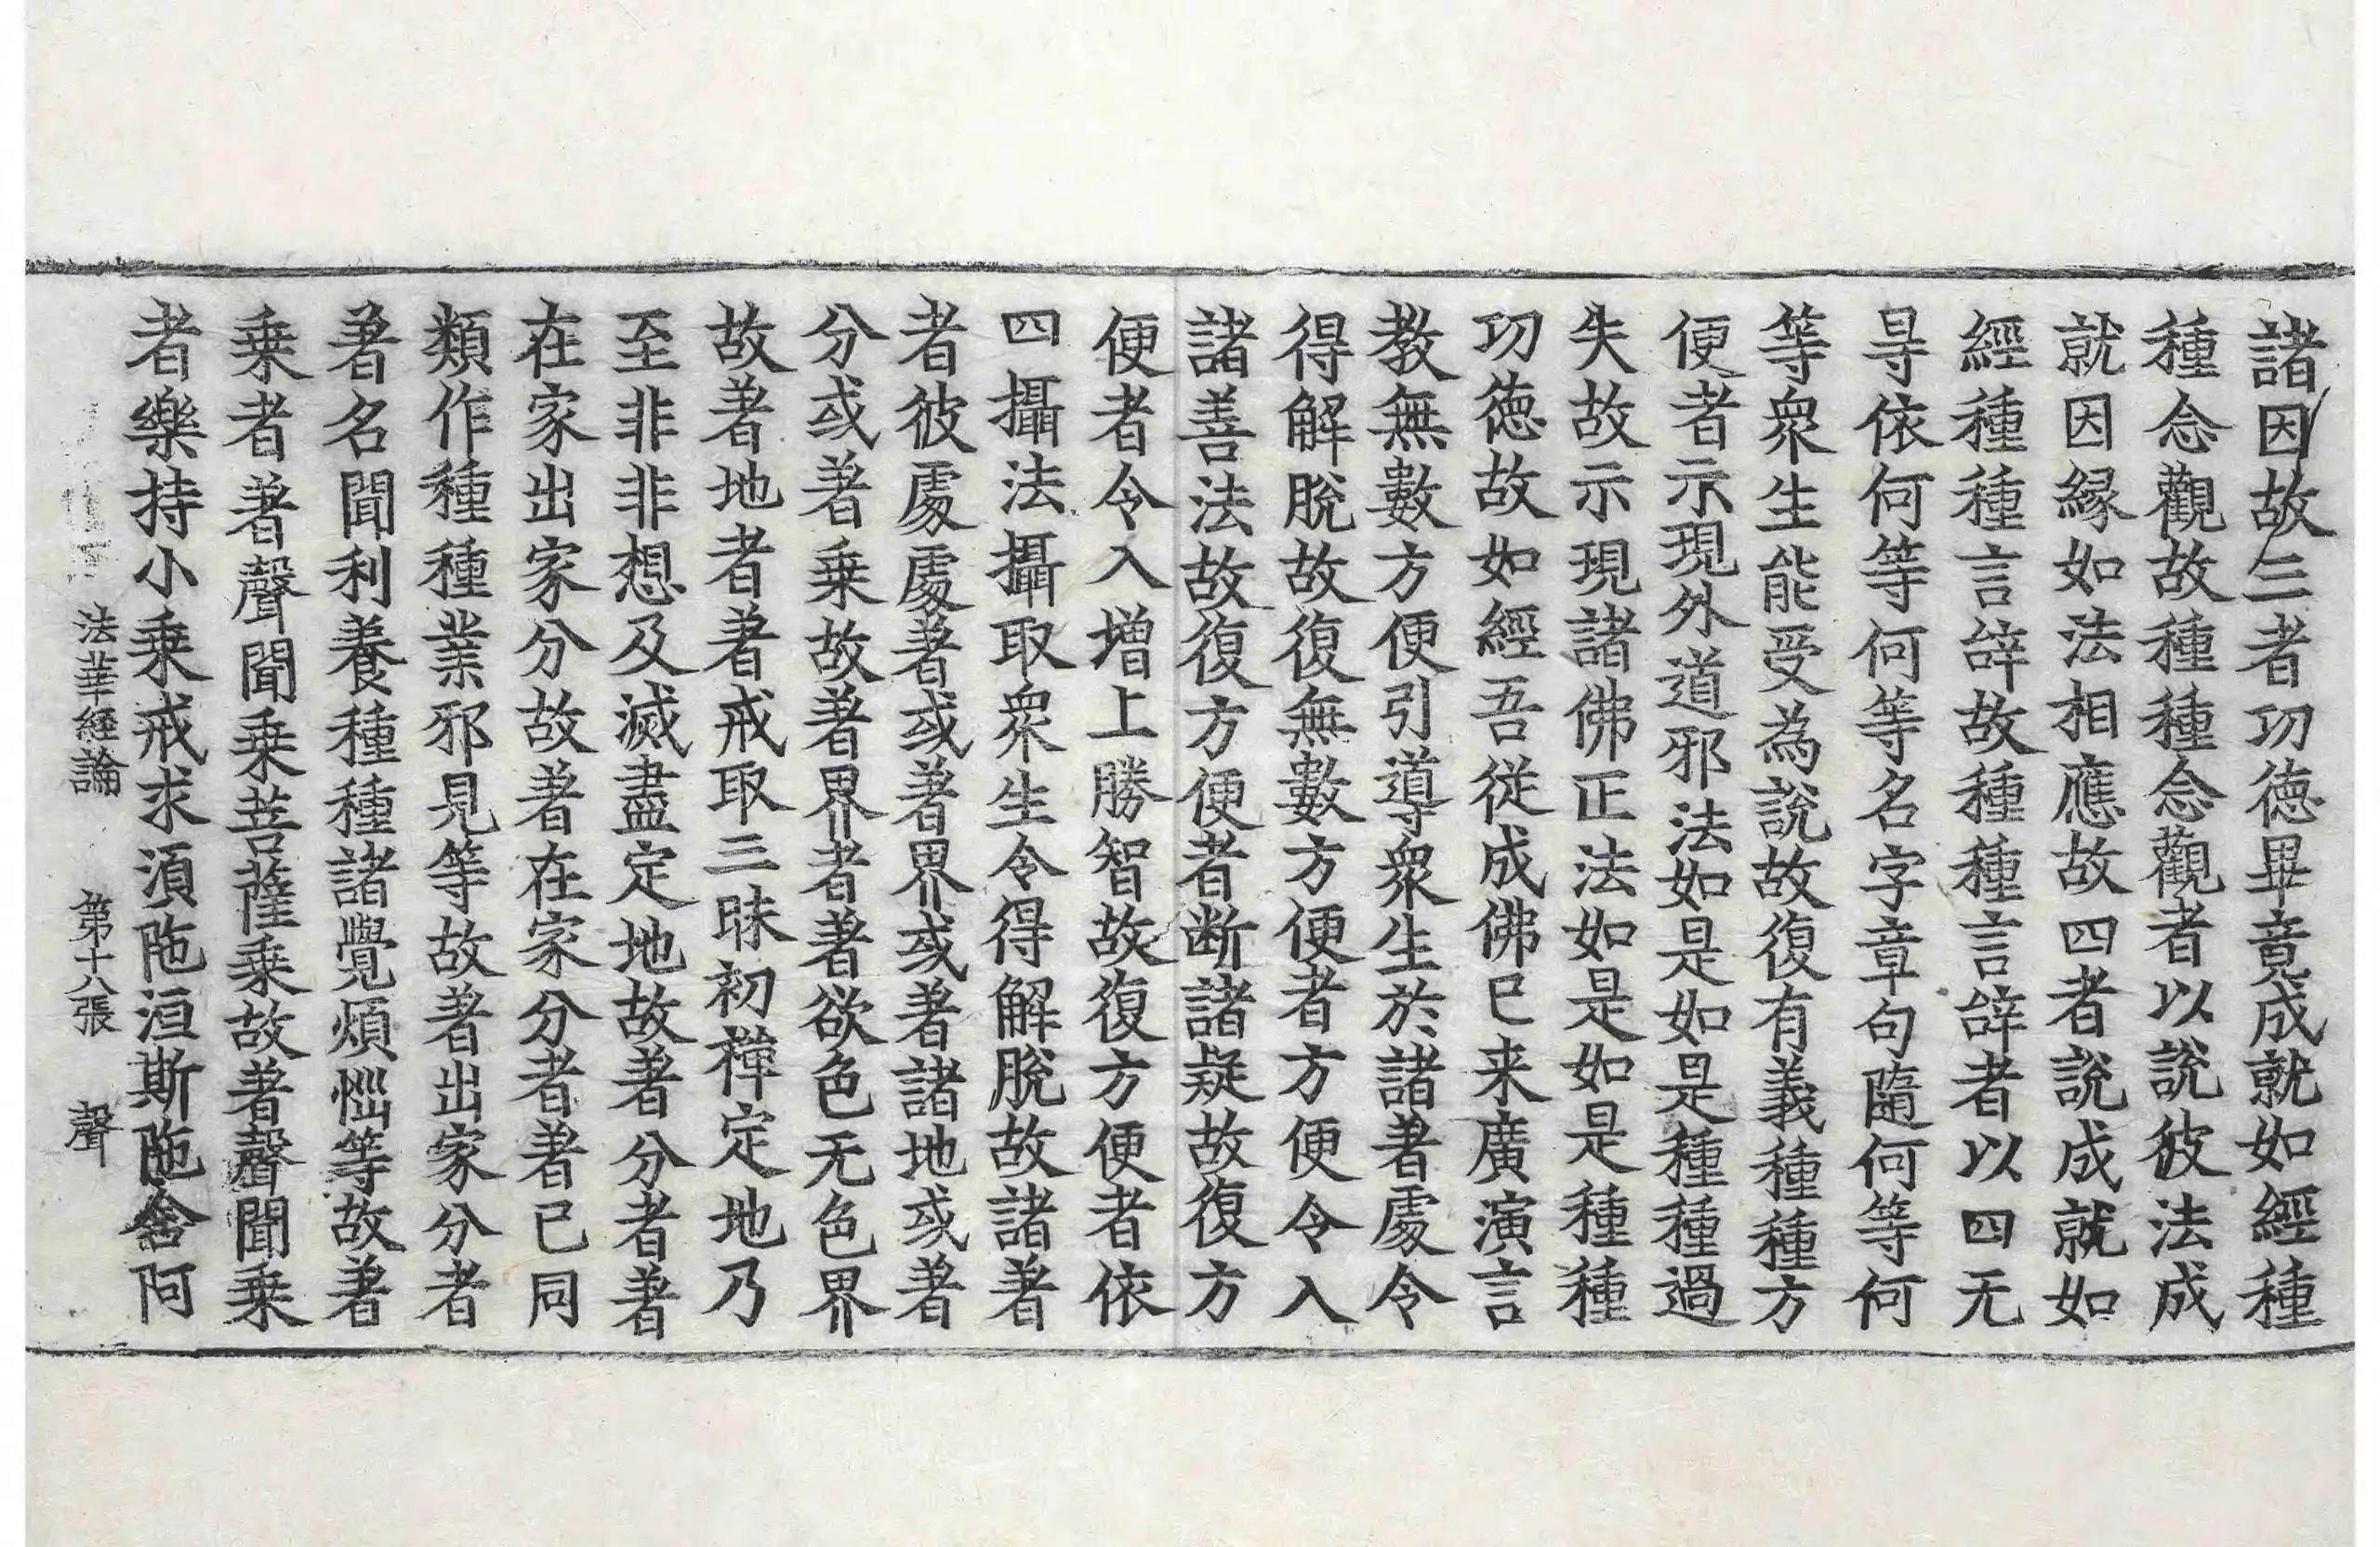 諸因故三者功徳畢竟成就如經種
種念觀故種種念觀者以說彼法成
就因縁如法相應故四者說成就如
經種種言辝故種種言辝者以四无
㝵依何等何等名字章句隨何等何
等衆生能受為說故復有義種種方
便者示現外道邪法如是如是種種過
失故示現諸佛正法如是如是種種
功徳故如經吾従成佛已来廣演言
教無數方便引導衆生於諸著處令
得解脫故復無數方便者方便令入
諸善法故復方便者断諸疑故復方
便者令入增上勝智故復方便者依
四攝法攝取衆生令得解脫故諸著
者彼處處著或著界或著諸地或著
分或著乗故著界者著欲色无色界
故著地者著戒取三昧初禪定地乃
至非非想及滅盡定地故著分者著
在家出家分故著在家分者著已同
類作種種業邪見等故著出家分者
著名聞利養種種諸覺煩惱等故著
乗者著聲聞乗菩薩乗故著聲聞乗
者樂持小乗戒求湏陁洹斯陁含阿
法華經論 第十八張 聲